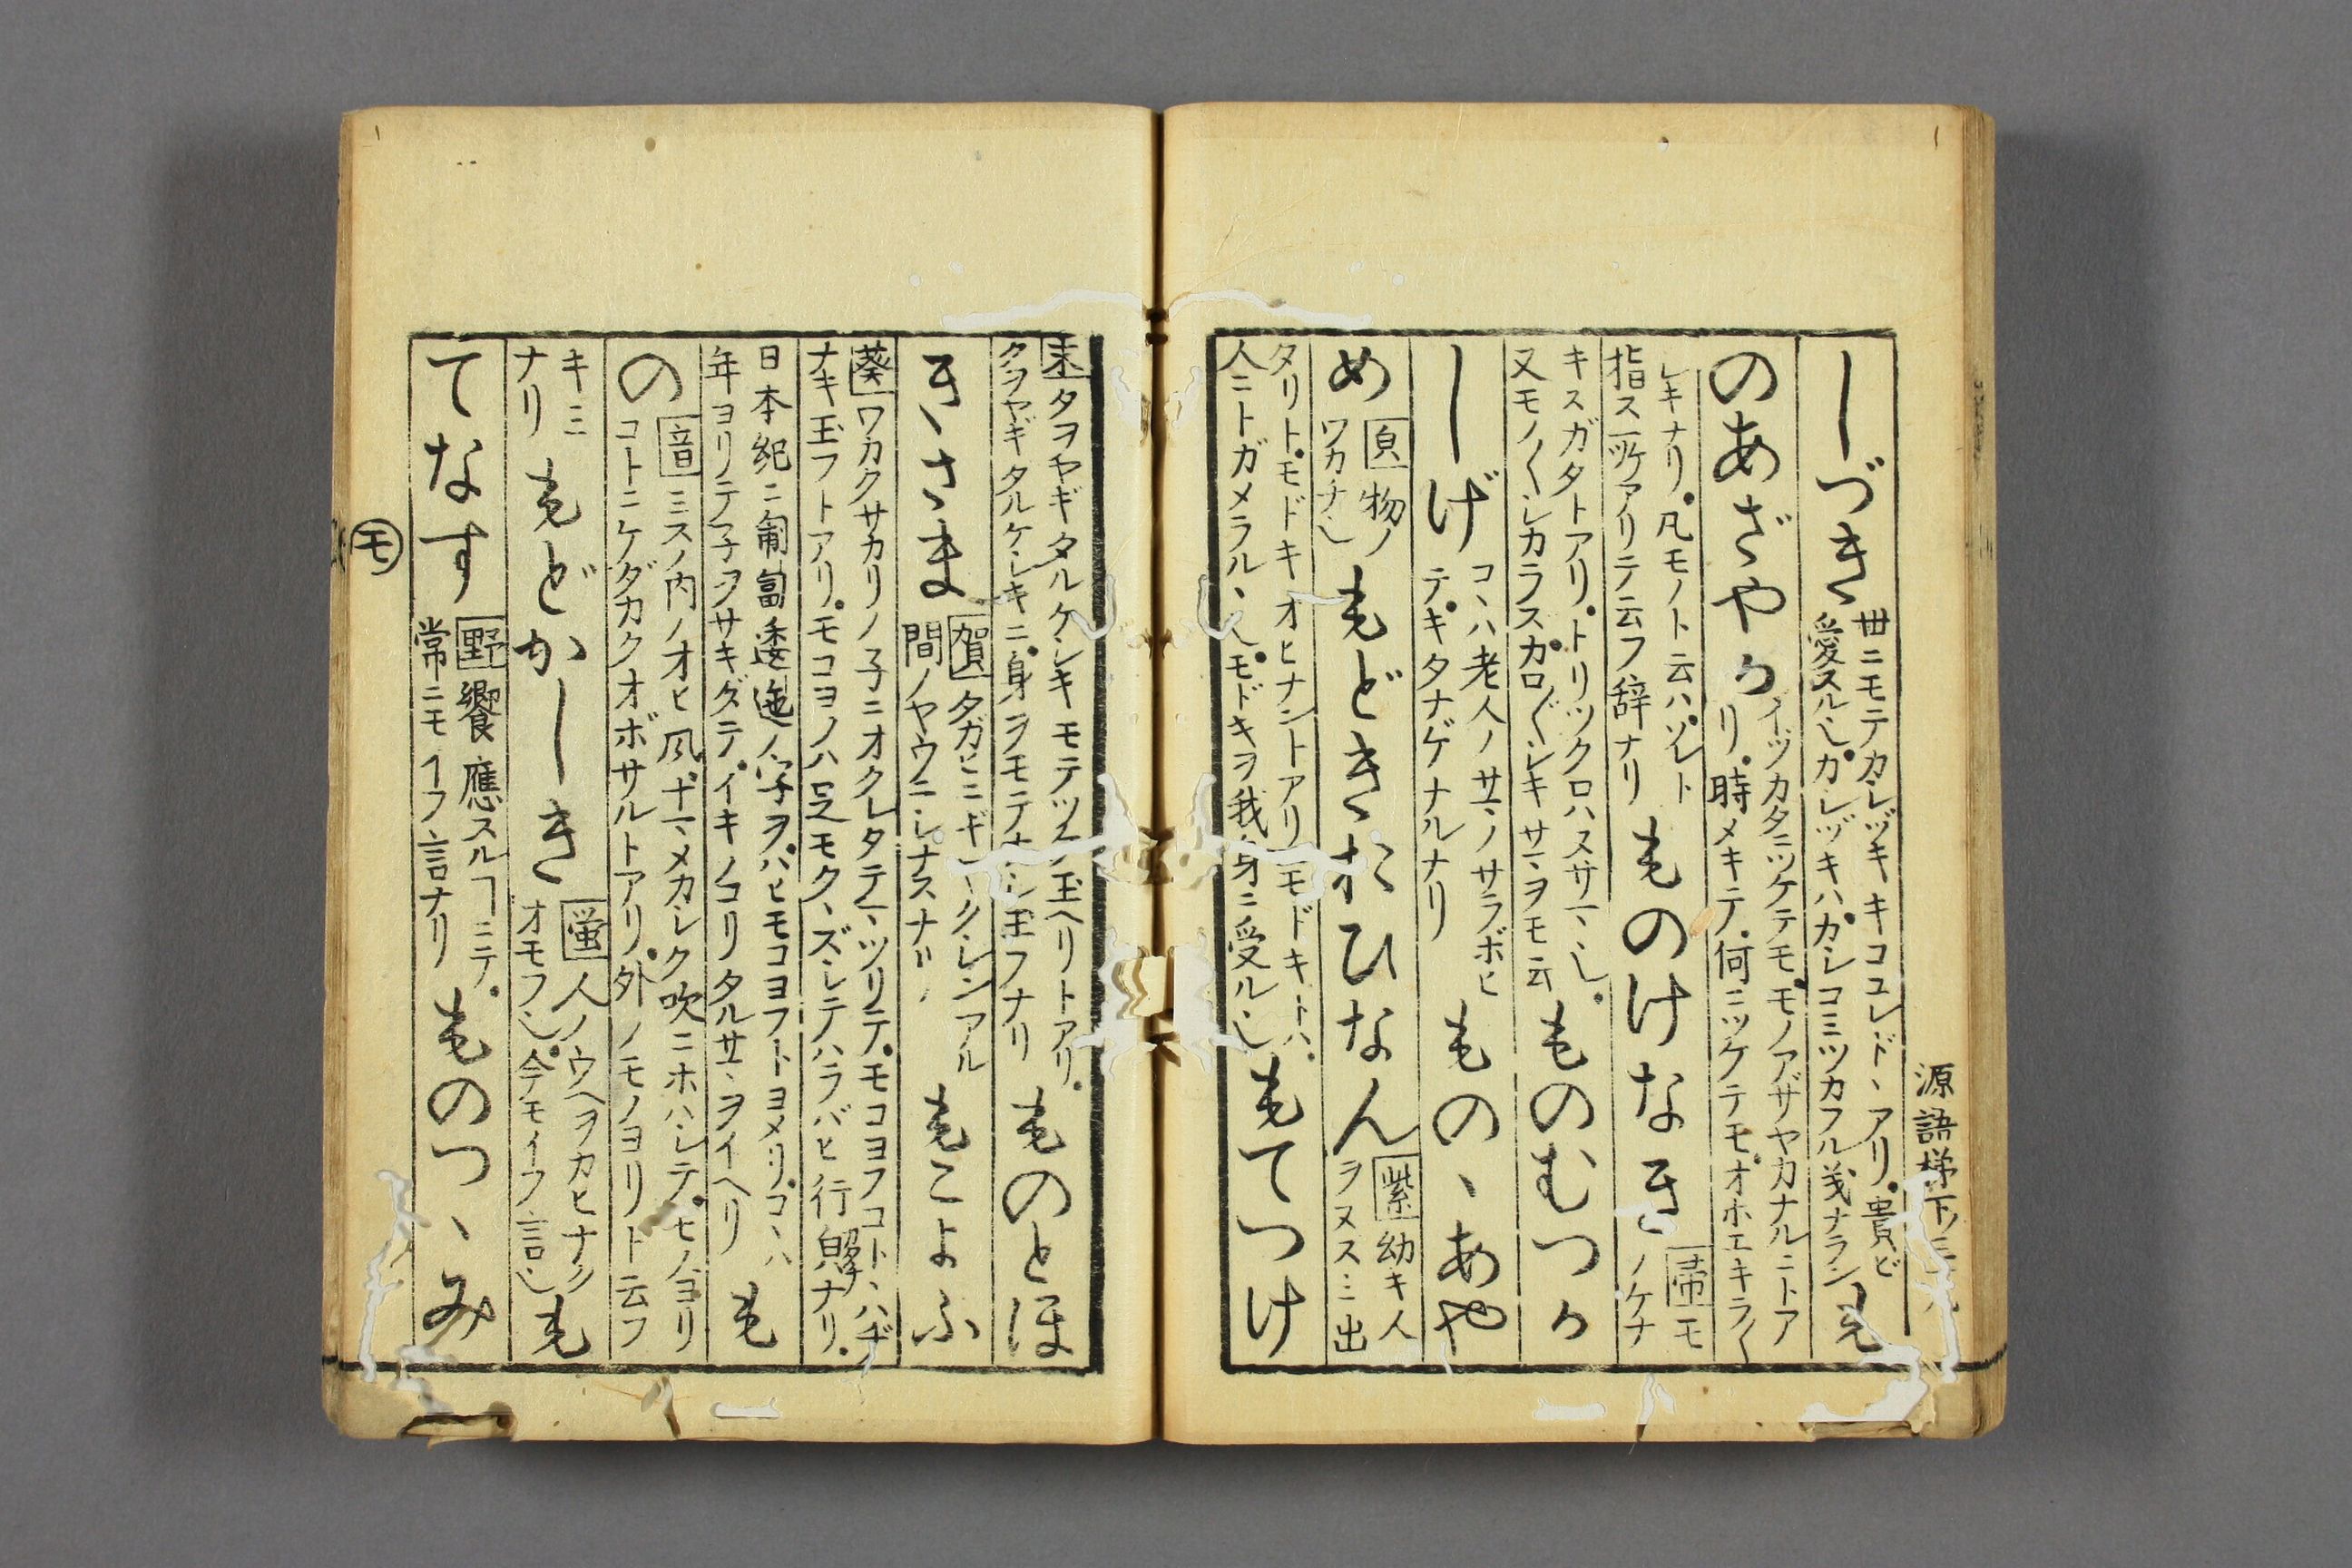 源語梯下ノ三
しづき 世ニモテカシヅキキコユレド、アリ。貴ビ
愛スル也。カシヅキハ。カシコミツカフル義ナラン も
のあざやか イヅカタニツケテモ。モノアザヤカナルニトア
リ。時メキテ。何ニツケテモ。オホエキラ〱
シキナリ。凡モノト云ハ。ソレト
指ス所アリテ云フ辞ナリ ものけなき 帚モ
ノケナ
キスガタトアリ。トリツクロハスサマ也。
又モノ〱シカラス。カロ〲シキサマヲモ云 ものむつか
しげ コヽハ老人ノサマノサラボヒ
テ。キタナゲナルナリ ものゝあや
め 夕物ノ
ワカチ也 もどきおひなん 紫幼キ人
ヲヌスミ出
タリト。モドキオヒナントアリ。モドキトハ。
人ニトガメラルヽ也。モドキヲ我身ニ受ル也 もてつけ
末タヲヤギタルケシキモテツケ玉ヘリトアリ。
タヲヤギタルケシキニ。身ヲモテナシ玉フナリ ものとほ
きさま 賀タガヒニギ クシンアル
間ノヤウニシナスナド もこよふ
葵ワカクサカリノ子ニオクレタテマツリテ。モコヨフコトヽハヂ
ナキ玉フトアリ。モコヨノハ足モクヽズシテハラバヒ行貌ナリ。
日本紀ニ匍匐逶迤ノ字ヲ。ハヒモコヨフトヨメリ。コヽハ
年ヨリノテ子ヲサキダテ。イキノコリタルサマヲイヘリ も
の音 ミスノ内ノオヒ風。ナマメカシク吹ニホハシテ。モノヨリ
コトニケダカクオボサルトアリ。外ノモノヨリト云フ
キミ
ナリ もどかしき 蛍人ノウヘヲカヒナク
オモフ也。今モイフ言也 も
てなす 野饗應スルヿニテ。
常ニモイフ言ナリ ものつゝみ
モ